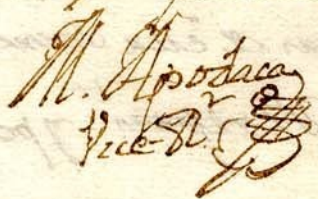 M. Apodaca
Vice-Rr.